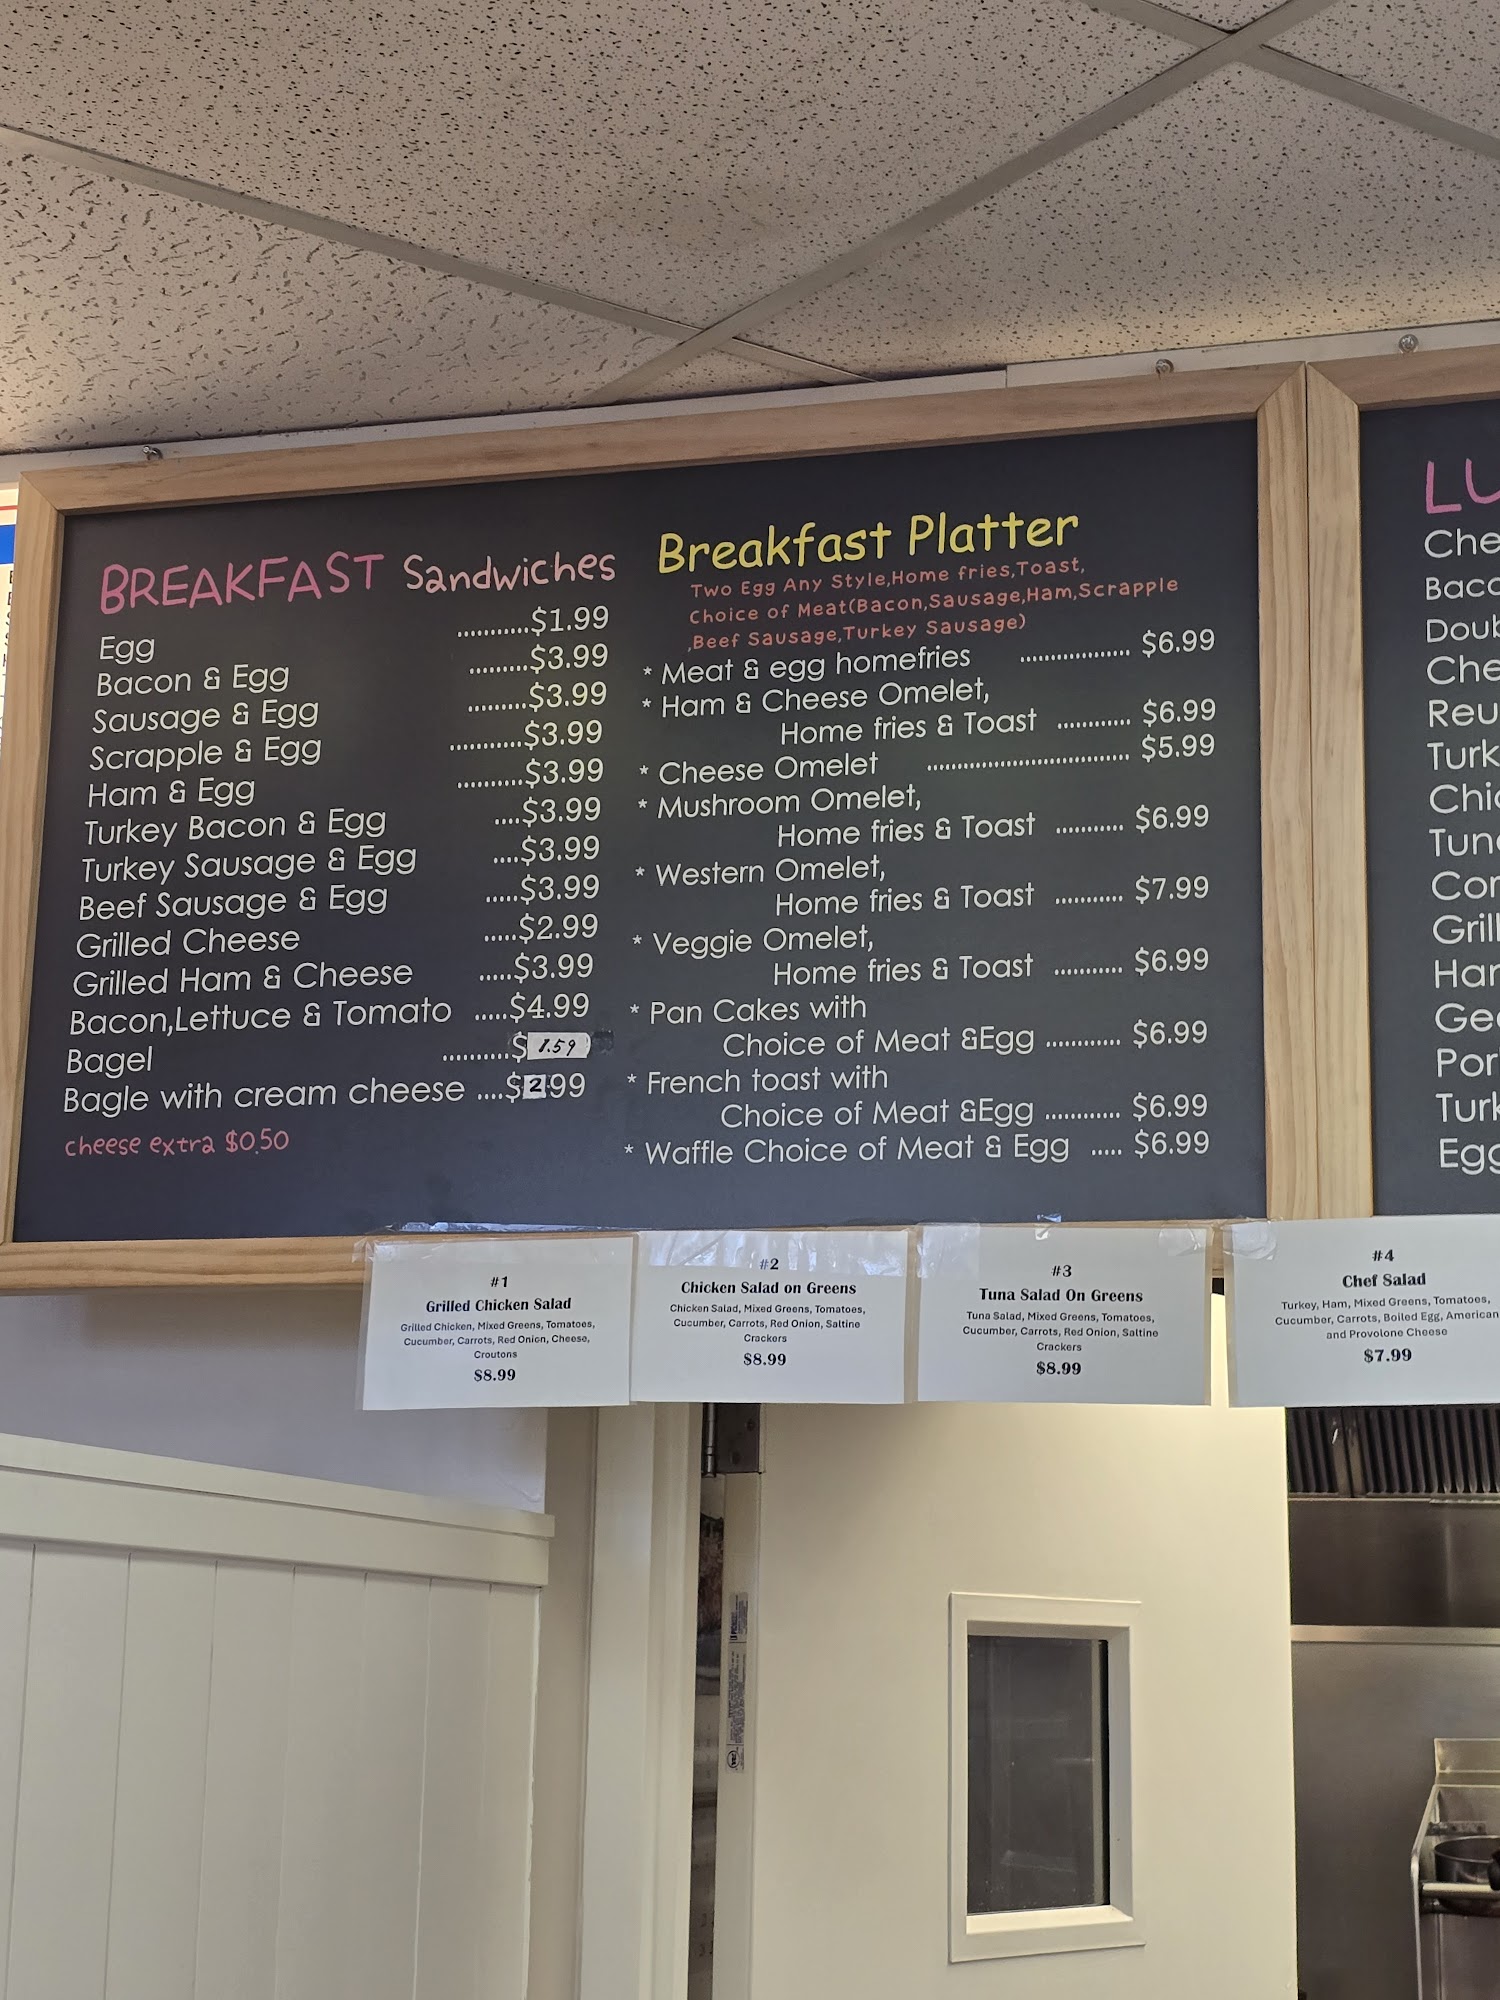 BREAKFAST Sandwiches
Egg ...........$1.99
Bacon & Egg .........$3.99
Sausage & Egg .........$3.99
Scrapple & Egg ...........$3.99
Ham & Egg ..........$3.99
Turkey Bacon & Egg ....$3.99
Turkey Sausage & Egg ....$3.99
Beef Sausage & Egg .....$3.99
Grilled Cheese .....$2.99
Grilled Ham & Cheese .....$3.99
Bacon,Lettuce & Tomato .....$4.99
Bagel ..........$1.59
Bagle with cream cheese ....$2.99
cheese extra $0.50
Breakfast Platter
Two Egg Any Style,Home fries,Toast,
Choice of Meat(Bacon,Sausage,Ham,Scrapple
,Beef Sausage,Turkey Sausage)
* Meat & egg homefries ................. $6.99
* Ham & Cheese Omelet,
Home fries & Toast ............ $6.99
* Cheese Omelet ................................. $5.99
* Mushroom Omelet,
Home fries & Toast ........... $6.99
* Western Omelet,
Home fries & Toast ........... $7.99
* Veggie Omelet,
Home fries & Toast ........... $6.99
* Pan Cakes with
Choice of Meat &Egg ............ $6.99
* French toast with
Choice of Meat &Egg ............ $6.99
* Waffle Choice of Meat & Egg ..... $6.99
LU
Che
Baco
Doub
Che
Reu
Turk
Chic
Tuna
Cor
Grill
Han
Geo
Por
Turk
Egg
#1
Grilled Chicken Salad
Grilled Chicken, Mixed Greens, Tomatoes,
Cucumber, Carrots, Red Onion, Cheese,
Croutons
$8.99
#2
Chicken Salad on Greens
Chicken Salad, Mixed Greens, Tomatoes,
Cucumber, Carrots, Red Onion, Saltine
Crackers
$8.99
#3
Tuna Salad On Greens
Tuna Salad, Mixed Greens, Tomatoes,
Cucumber, Carrots, Red Onion, Saltine
Crackers
$8.99
#4
Chef Salad
Turkey, Ham, Mixed Greens, Tomatoes,
Cucumber, Carrots, Boiled Egg, American
and Provolone Cheese
$7.99